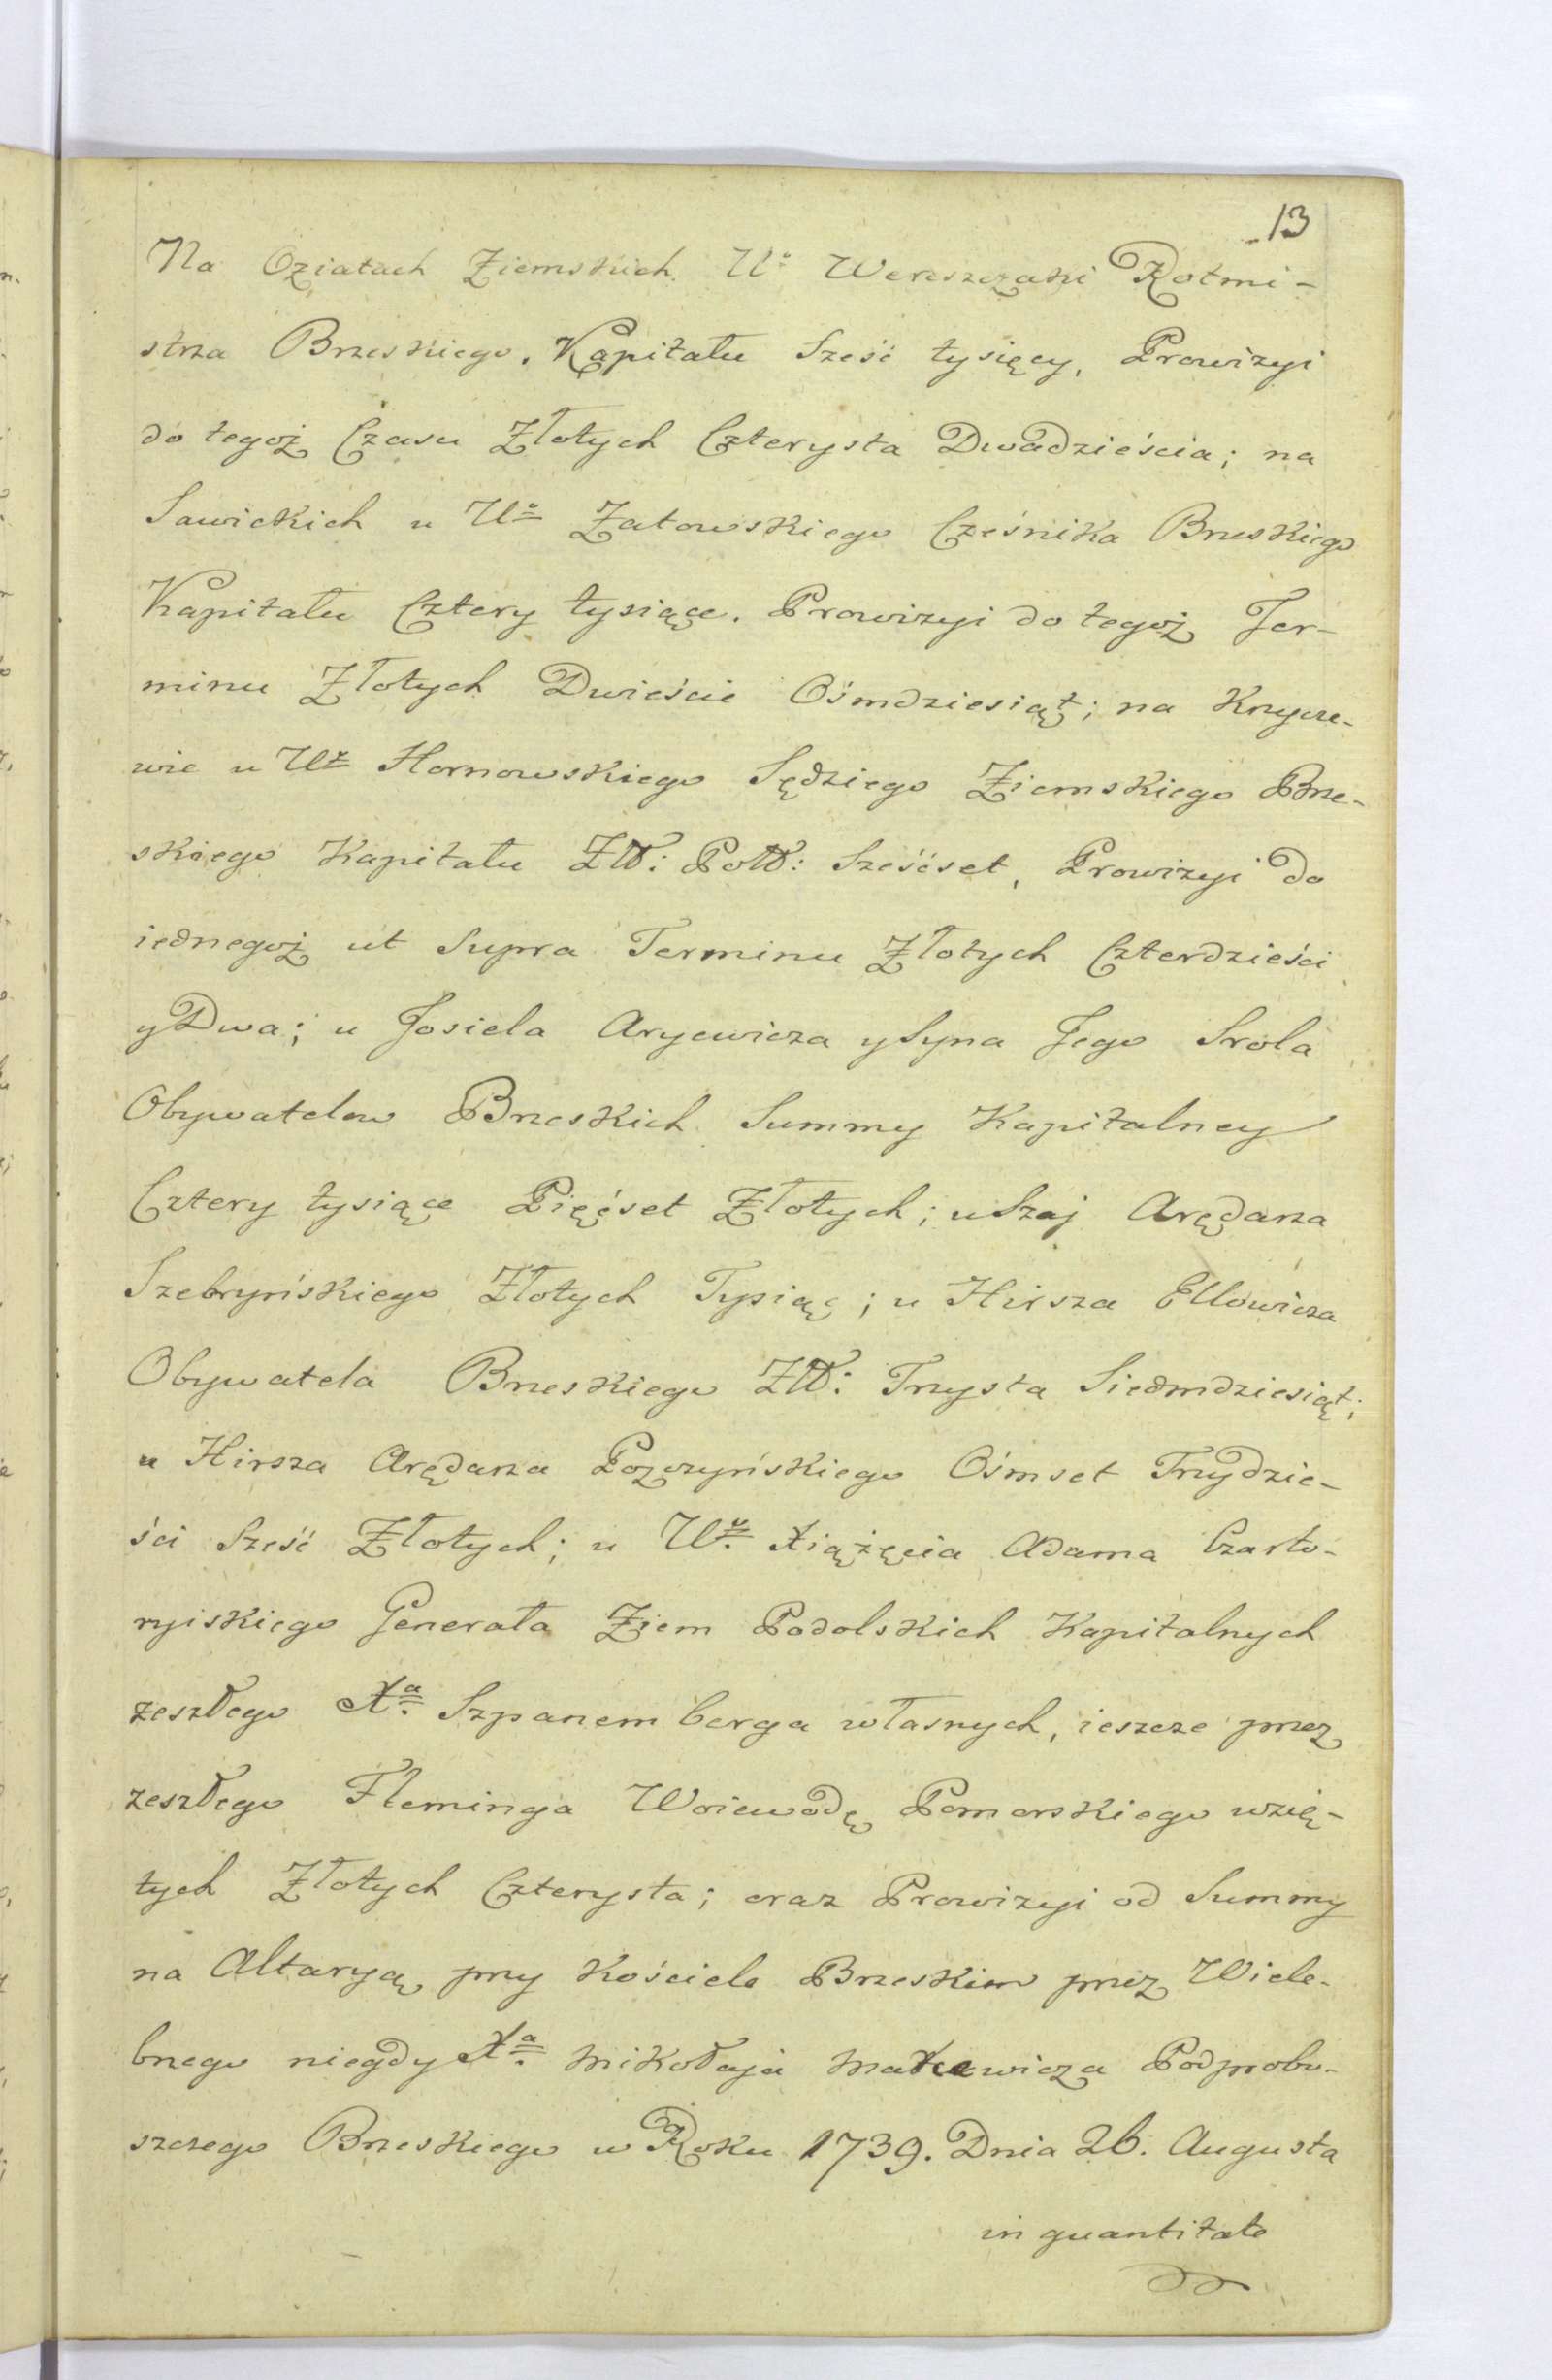 13
Na Oziatach Ziemskich U° Wereszczaki Rotmi-
strza Brzeskiego. Kapitału Sześć tysięcy, Prowizyi
do tegoż Czasu Złotych Czterysta Dwadzieścia; na
Sawickich u U° Zatowskiego Cześnika Brzeskiego
Kapitału Cztery tysiące. Prowizyi do tegoż Ter-
minu Złotych Dwieście Ośmdziesiąt; na Krzycze-
wie u Hornowskiego Sędziego Ziemskiego Brze-
skiego Kapitału Złł: Poll: Sześćset, Prowizyi do
iednegoż ut Supra Terminu Złotych Czterdzieści
y Dwa; u Josiela Aryewicza y Syna Jego Srola
Obywatelow Brzeskich Summy Kapitalney
Cztery tysiące Pięćset Złotych; u Szaj Arędarza
Szebryńskiego Złotych Tysiąc; u Hirsza Ellowicza
Obywatela Brzeskiego Złł: Trzysta Siedmdziesiąt;
u Hirsza Arędarza Pozczyńskiego Ośmset Trzydzie-
ści Sześć Złotych; u Xiążęcia Adama Czarto-
ryiskiego Generała Ziem Podolskich Kapitalnych
zeszłego Xa. Szpanemberga własnych, ieszcze przez
zeszłego Fleminga Woiewodę Pomorskiego wzię-
tych Złotych Czterysta; oraz Prowizyi od Summy
na Altaryą przy Kościele Brzeskim przez Wiele-
bnego niegdy Xa. Mikołaja Makewicza Podprobo-
szczego Brzeskiego w Roku 1739. Dnia 26. Augusta
in quantitate